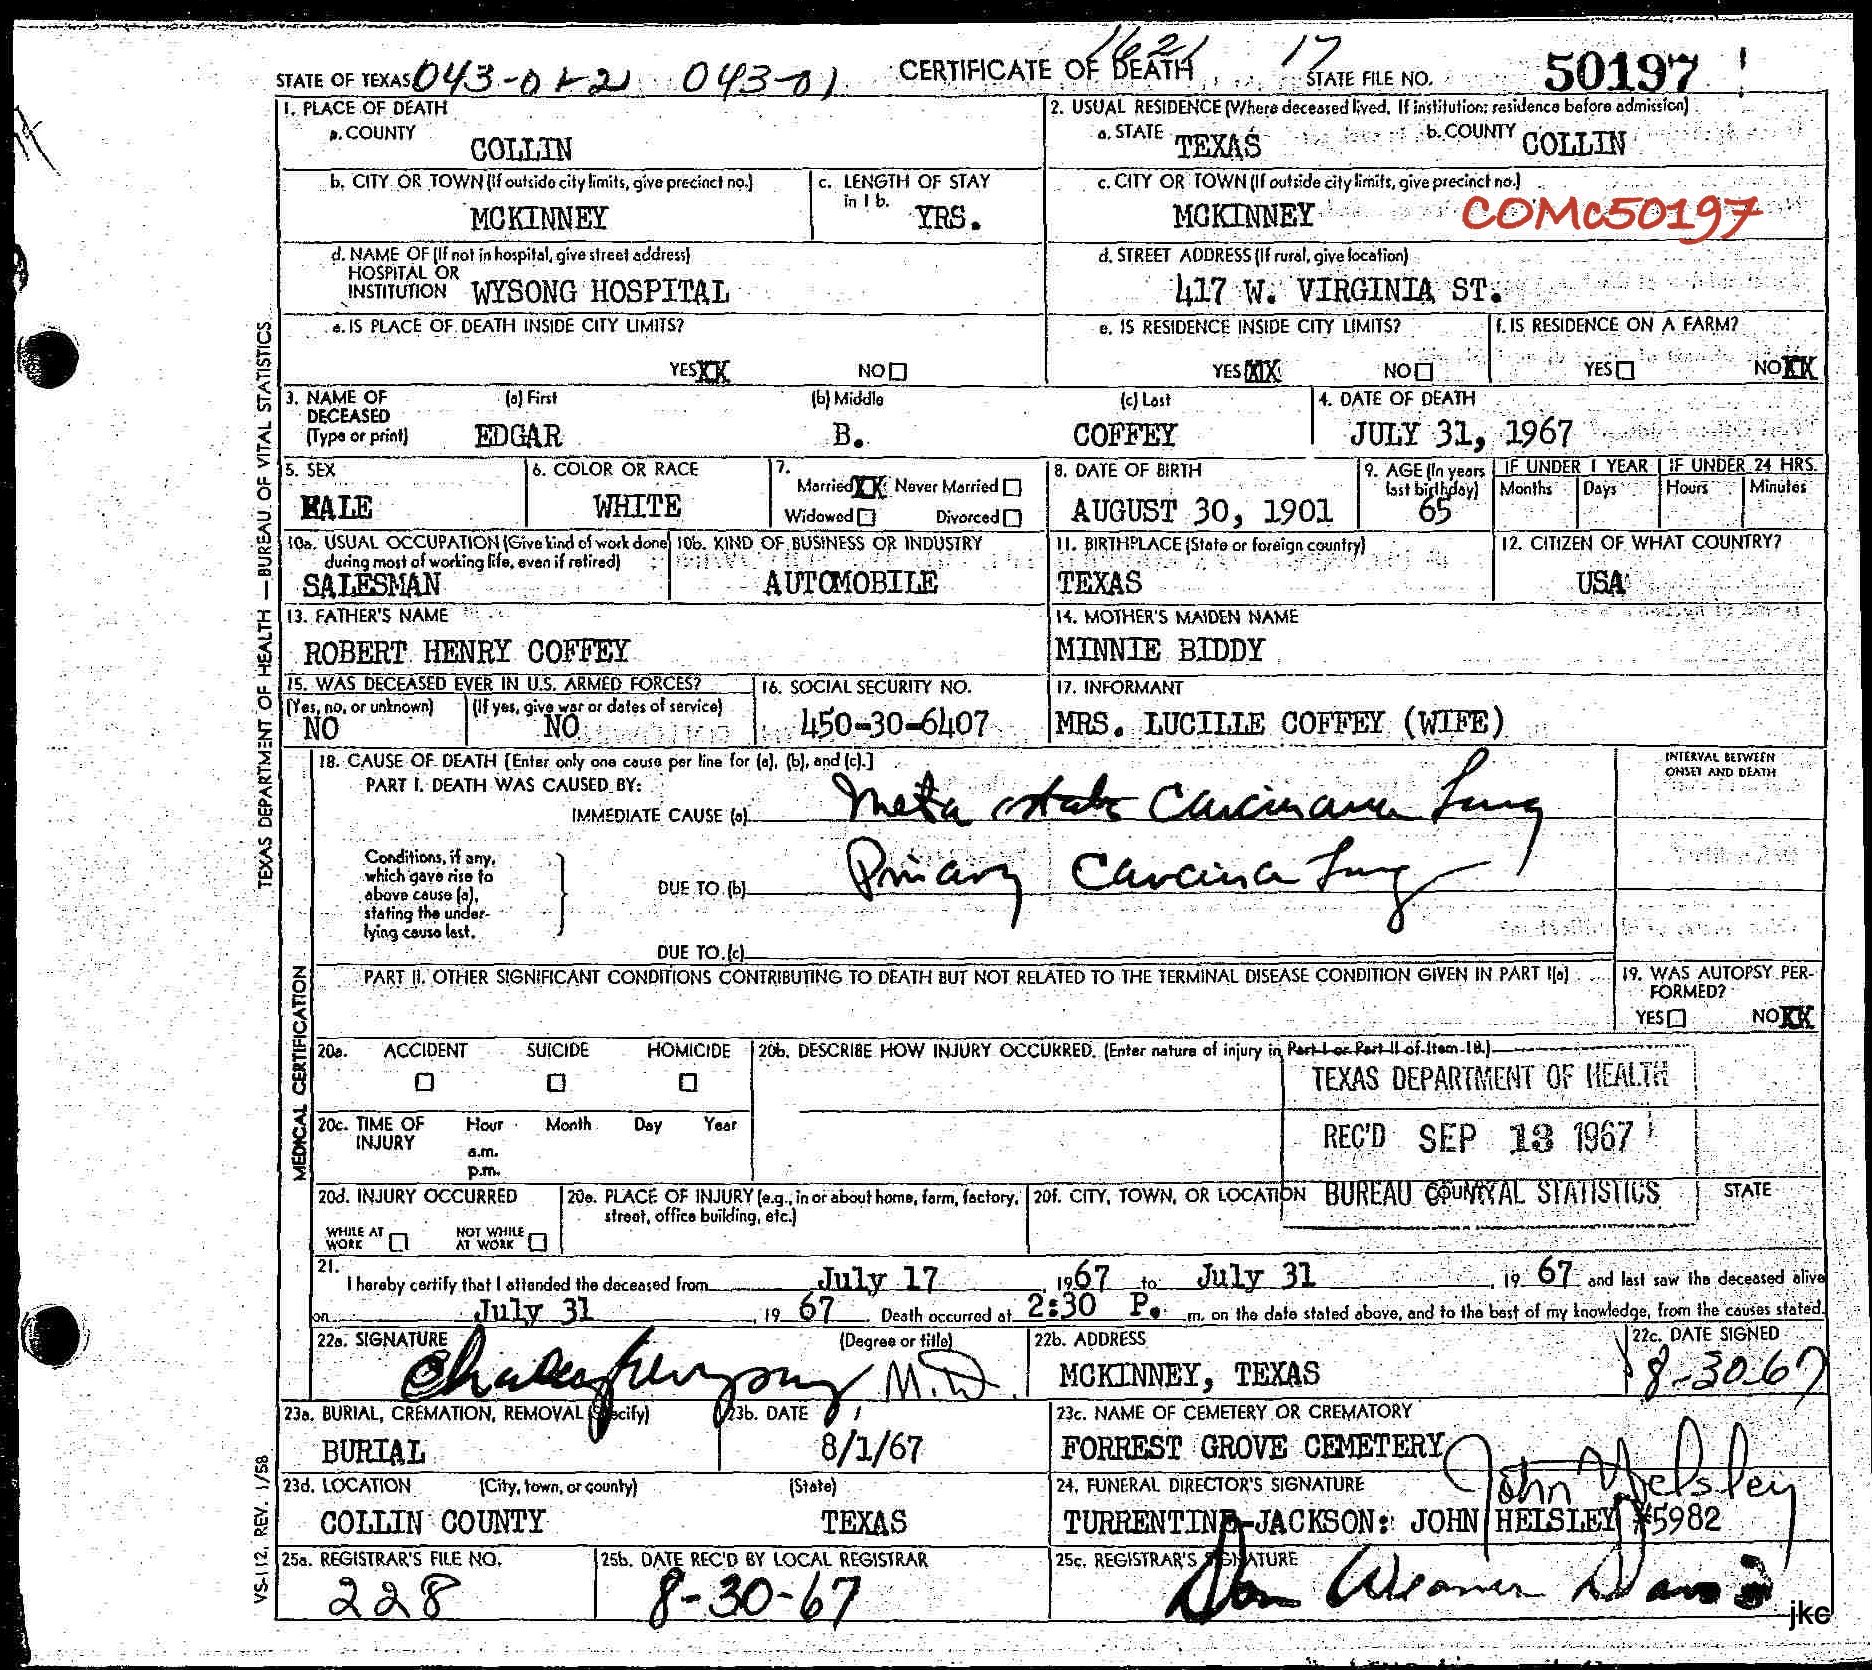 1621 17
STATE OF TEXAS 043-01-2 043-01 CERTIFICATE OF DEATH STATE FILE NO. 50197
1. PLACE OF DEATH
a. COUNTY
COLLIN
2. USUAL RESIDENCE (Where deceased lived. If institution: residence before admission)
a. STATE TEXAS b. COUNTY COLLIN
b. CITY OR TOWN (If outside city limits, give precinct no.)
MCKINNEY
c. LENGTH OF STAY
in 1 b. YRS.
c. CITY OR TOWN (If outside city limits, give precinct no.)
MCKINNEY COMc50197
d. NAME OF (If not in hospital, give street address)
HOSPITAL OR
INSTITUTION WYSONG HOSPITAL
d. STREET ADDRESS (If rural, give location)
417 W. VIRGINIA ST.
e. IS PLACE OF DEATH INSIDE CITY LIMITS?
YES XX NO
e. IS RESIDENCE INSIDE CITY LIMITS?
YES XX NO
f. IS RESIDENCE ON A FARM?
YES NO XX
3. NAME OF
DECEASED
(Type or print)
(a) First (b) Middle (c) Last
EDGAR B. COFFEY
4. DATE OF DEATH
JULY 31, 1967
5. SEX
MALE
6. COLOR OR RACE
WHITE
7.
Married XX Never Married
Widowed Divorced
8. DATE OF BIRTH
AUGUST 30, 1901
9. AGE (In years
last birthday)
65
IF UNDER 1 YEAR IF UNDER 24 HRS.
Months Days Hours Minutes
10a. USUAL OCCUPATION (Give kind of work done
during most of working life, even if retired)
SALESMAN
10b. KIND OF BUSINESS OR INDUSTRY
AUTOMOBILE
11. BIRTHPLACE (State or foreign country)
TEXAS
12. CITIZEN OF WHAT COUNTRY?
USA
13. FATHER'S NAME
ROBERT HENRY COFFEY
14. MOTHER'S MAIDEN NAME
MINNIE BIDDY
15. WAS DECEASED EVER IN U.S. ARMED FORCES?
(Yes, no, or unknown) (If yes, give war or dates of service)
NO NO
16. SOCIAL SECURITY NO.
450-30-6407
17. INFORMANT
MRS. LUCILLE COFFEY (WIFE)
18. CAUSE OF DEATH [Enter only one cause per line for (a), (b), and (c).]
PART I. DEATH WAS CAUSED BY:
IMMEDIATE CAUSE (a) Meta static Carcinoma Lung
INTERVAL BETWEEN
ONSET AND DEATH
Conditions, if any,
which gave rise to
above cause (a),
stating the under-
lying cause last.
DUE TO (b) Primary Carcina Lung
DUE TO (c)
PART II. OTHER SIGNIFICANT CONDITIONS CONTRIBUTING TO DEATH BUT NOT RELATED TO THE TERMINAL DISEASE CONDITION GIVEN IN PART I(a)
19. WAS AUTOPSY PER-
FORMED?
YES NO XX
20a. ACCIDENT SUICIDE HOMICIDE
20b. DESCRIBE HOW INJURY OCCURRED. (Enter nature of injury in Part I or Part II of Item 18.)
TEXAS DEPARTMENT OF HEALTH
REC'D SEP 13 1967
BUREAU OF VITAL STATISTICS
20c. TIME OF
INJURY
Hour Month Day Year
a.m.
p.m.
20d. INJURY OCCURRED
WHILE AT
WORK
NOT WHILE
AT WORK
20e. PLACE OF INJURY (e.g., in or about home, farm, factory,
street, office building, etc.)
20f. CITY, TOWN, OR LOCATION COUNTY STATE
21.
I hereby certify that I attended the deceased from July 17 1967 to July 31, 19 67 and last saw the deceased alive
on July 31, 19 67. Death occurred at 2:30 P. m. on the date stated above, and to the best of my knowledge, from the causes stated.
22a. SIGNATURE (Degree or title)
M.D.
22b. ADDRESS
MCKINNEY, TEXAS
22c. DATE SIGNED
8-30-67
23a. BURIAL, CREMATION, REMOVAL (Specify)
BURIAL
23b. DATE
8/1/67
23c. NAME OF CEMETERY OR CREMATORY
FORREST GROVE CEMETERY
23d. LOCATION (City, town, or county) (State)
COLLIN COUNTY TEXAS
24. FUNERAL DIRECTOR'S SIGNATURE John Helsley
TURRENTINE-JACKSON: JOHN HELSLEY #5982
25a. REGISTRAR'S FILE NO.
228
25b. DATE REC'D BY LOCAL REGISTRAR
8-30-67
25c. REGISTRAR'S SIGNATURE
Weaver Davis
jkc
TEXAS DEPARTMENT OF HEALTH — BUREAU OF VITAL STATISTICS
MEDICAL CERTIFICATION
VS-112, REV. 1/58